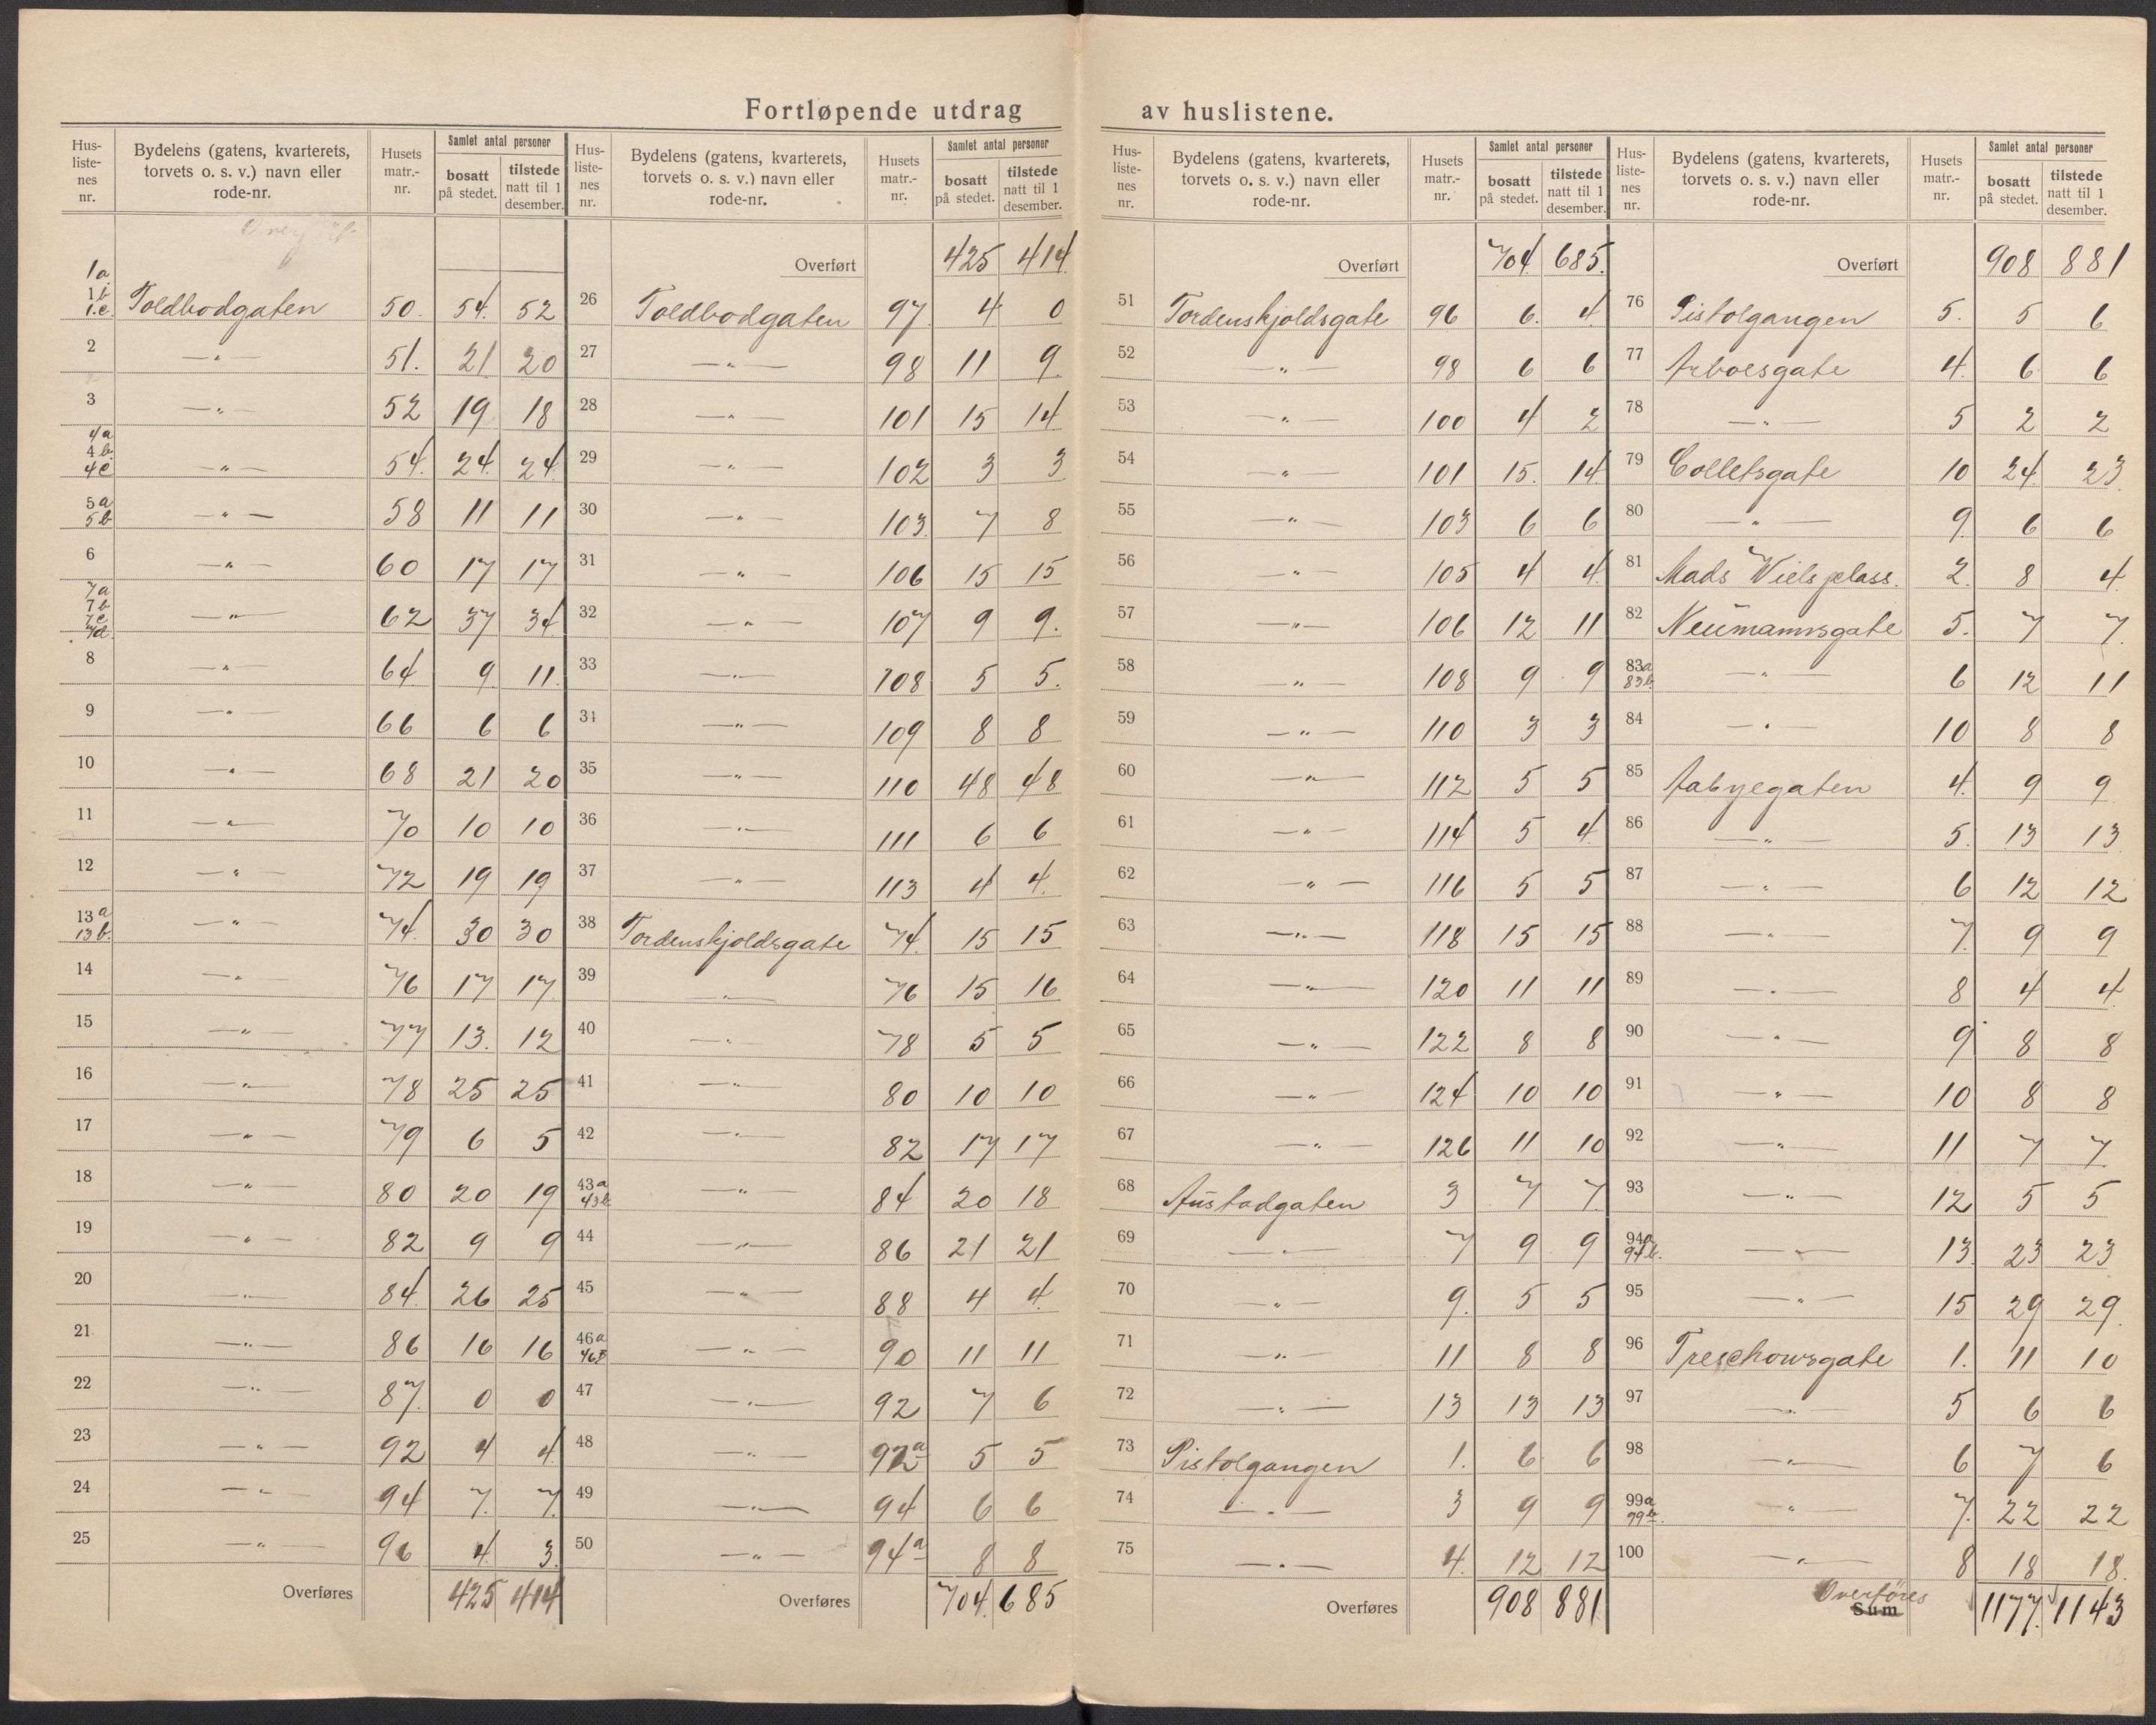 Fortløpende utdrag av huslistene.
Hus-listenes nr. | Bydelens (gatens, kvarterets, torvets o. s. v.) navn eller rode-nr. | Husets matr.-nr. | Samlet antal personer bosatt på stedet. | tilstede natt til 1 desember.
1a 1b 1.c. Toldbodgaten 50. 54. 52
2 —„— 51. 21 20
3 —„— 52 19 18
4a 4b. 4c —„— 54. 24. 24.
5a 5b —„— 58 11 11
6 —„— 60 17 17
7a 7b 7c 7d. —„— 62 37 34
8 —„— 64 9 11.
9 —„— 66 6 6
10 —„— 68 21 20
11 —„— 70 10 10
12 —„— 72 19 19
13a 13b. —„— 74. 30 30
14 —„— 76 17 17
15 —„— 77 13. 12
16 —„— 78 25 25
17 —„— 79 6 5
18 —„— 80 20 19
19 —„— 82 9 9
20 —„— 84. 26 25
21 —„— 86 16 16
22 —„— 87. 0 0
23 —„— 92 4 4
24 —„— 94 7. 7.
25 —„— 96 4 3.
Overføres 425 414
Hus-listenes nr. | Bydelens (gatens, kvarterets, torvets o. s. v.) navn eller rode-nr. | Husets matr.-nr. | Samlet antal personer bosatt på stedet. | tilstede natt til 1 desember.
Overført 425 414
26 Toldbodgaten 97 4 0
27 —„— 98 11 9.
28 —„— 101 15 14
29 —„— 102 3 3
30 —„— 103. 7 8
31 —„— 106 15 15
32 —„— 107 9 9.
33 —„— 108 5 5.
34 —„— 109 8 8
35 —„— 110 48 48
36 —„— 111 6 6
37 —„— 113 4 4.
38 Tordenskjoldsgate 74. 15 15
39 —„— 76 15 16
40 —„— 78 5 5
41 —„— 80 10 10
42 —„— 82 17 17
43a 43b —„— 84 20 18
44 —„— 86 21 21
45 —„— 88 4 4.
46a 46b —„— 90 11 11
47 —„— 92 7 6
48 —„— 92a 5 5
49 —„— 94 6 6
50 —„— 94a 8 8
Overføres 704. 685
Hus-listenes nr. | Bydelens (gatens, kvarterets, torvets o. s. v.) navn eller rode-nr. | Husets matr.-nr. | Samlet antal personer bosatt på stedet. | tilstede natt til 1 desember.
Overført 704. 685.
51 Tordenskjoldsgate 96 6. 4
52 —„— 98 6 6
53 —„— 100 4 2
54 —„— 101 15. 14
55 —„— 103 6 6
56 —„— 105 4 4
57 —„— 106 12 11
58 —„— 108 9 9
59 —„— 110 3 3
60 —„— 112 5 5
61 —„— 114 5 4
62 —„— 116 5 5
63 —„— 118 15 15
64 —„— 120 11 11
65 —„— 122 8 8
66 —„— 124 10 10
67 —„— 126 11 10
68 Austadgaten 3 7 7.
69 —„— 7 9 9
70 —„— 9. 5 5
71 —„— 11 8 8
72 —„— 13 13 13
73 Pistolgangen 1. 6 6
74 —„— 3 9 9
75 —„— 4. 12 12
Overføres 908 881
Hus-listenes nr. | Bydelens (gatens, kvarterets, torvets o. s. v.) navn eller rode-nr. | Husets matr.-nr. | Samlet antal personer bosatt på stedet. | tilstede natt til 1 desember.
Overført 908 881
76 Pistolgangen 5. 5 6
77 Arboesgate 4. 6 6
78 —„— 5 2 2
79 Colletsgate 10 24 23
80 —„— 9. 6 6
81 Mads Wiels plass. 2. 8 4
82 Neümannsgate 5. 7 7.
83a 83b. —„— 6 12 11
84 —„— 10 8 8
85 Aabyegaten 4. 9 9
86 —„— 5. 13 13
87 —„— 6 12 12
88 —„— 7. 9 9
89 —„— 8 4 4
90 —„— 9 8 8
91 —„— 10 8 8
92 —„— 11 7 7.
93 —„— 12 5 5
94a 94b. —„— 13. 23 23
95 —„— 15 29 29
96 Treschowsgate 1. 11 10
97 —„— 5 6 6
98 —„— 6 7 6
99a 99b. —„— 7. 22 22
100 —„— 8 18 18.
Overføres
Sum 1177. 1143